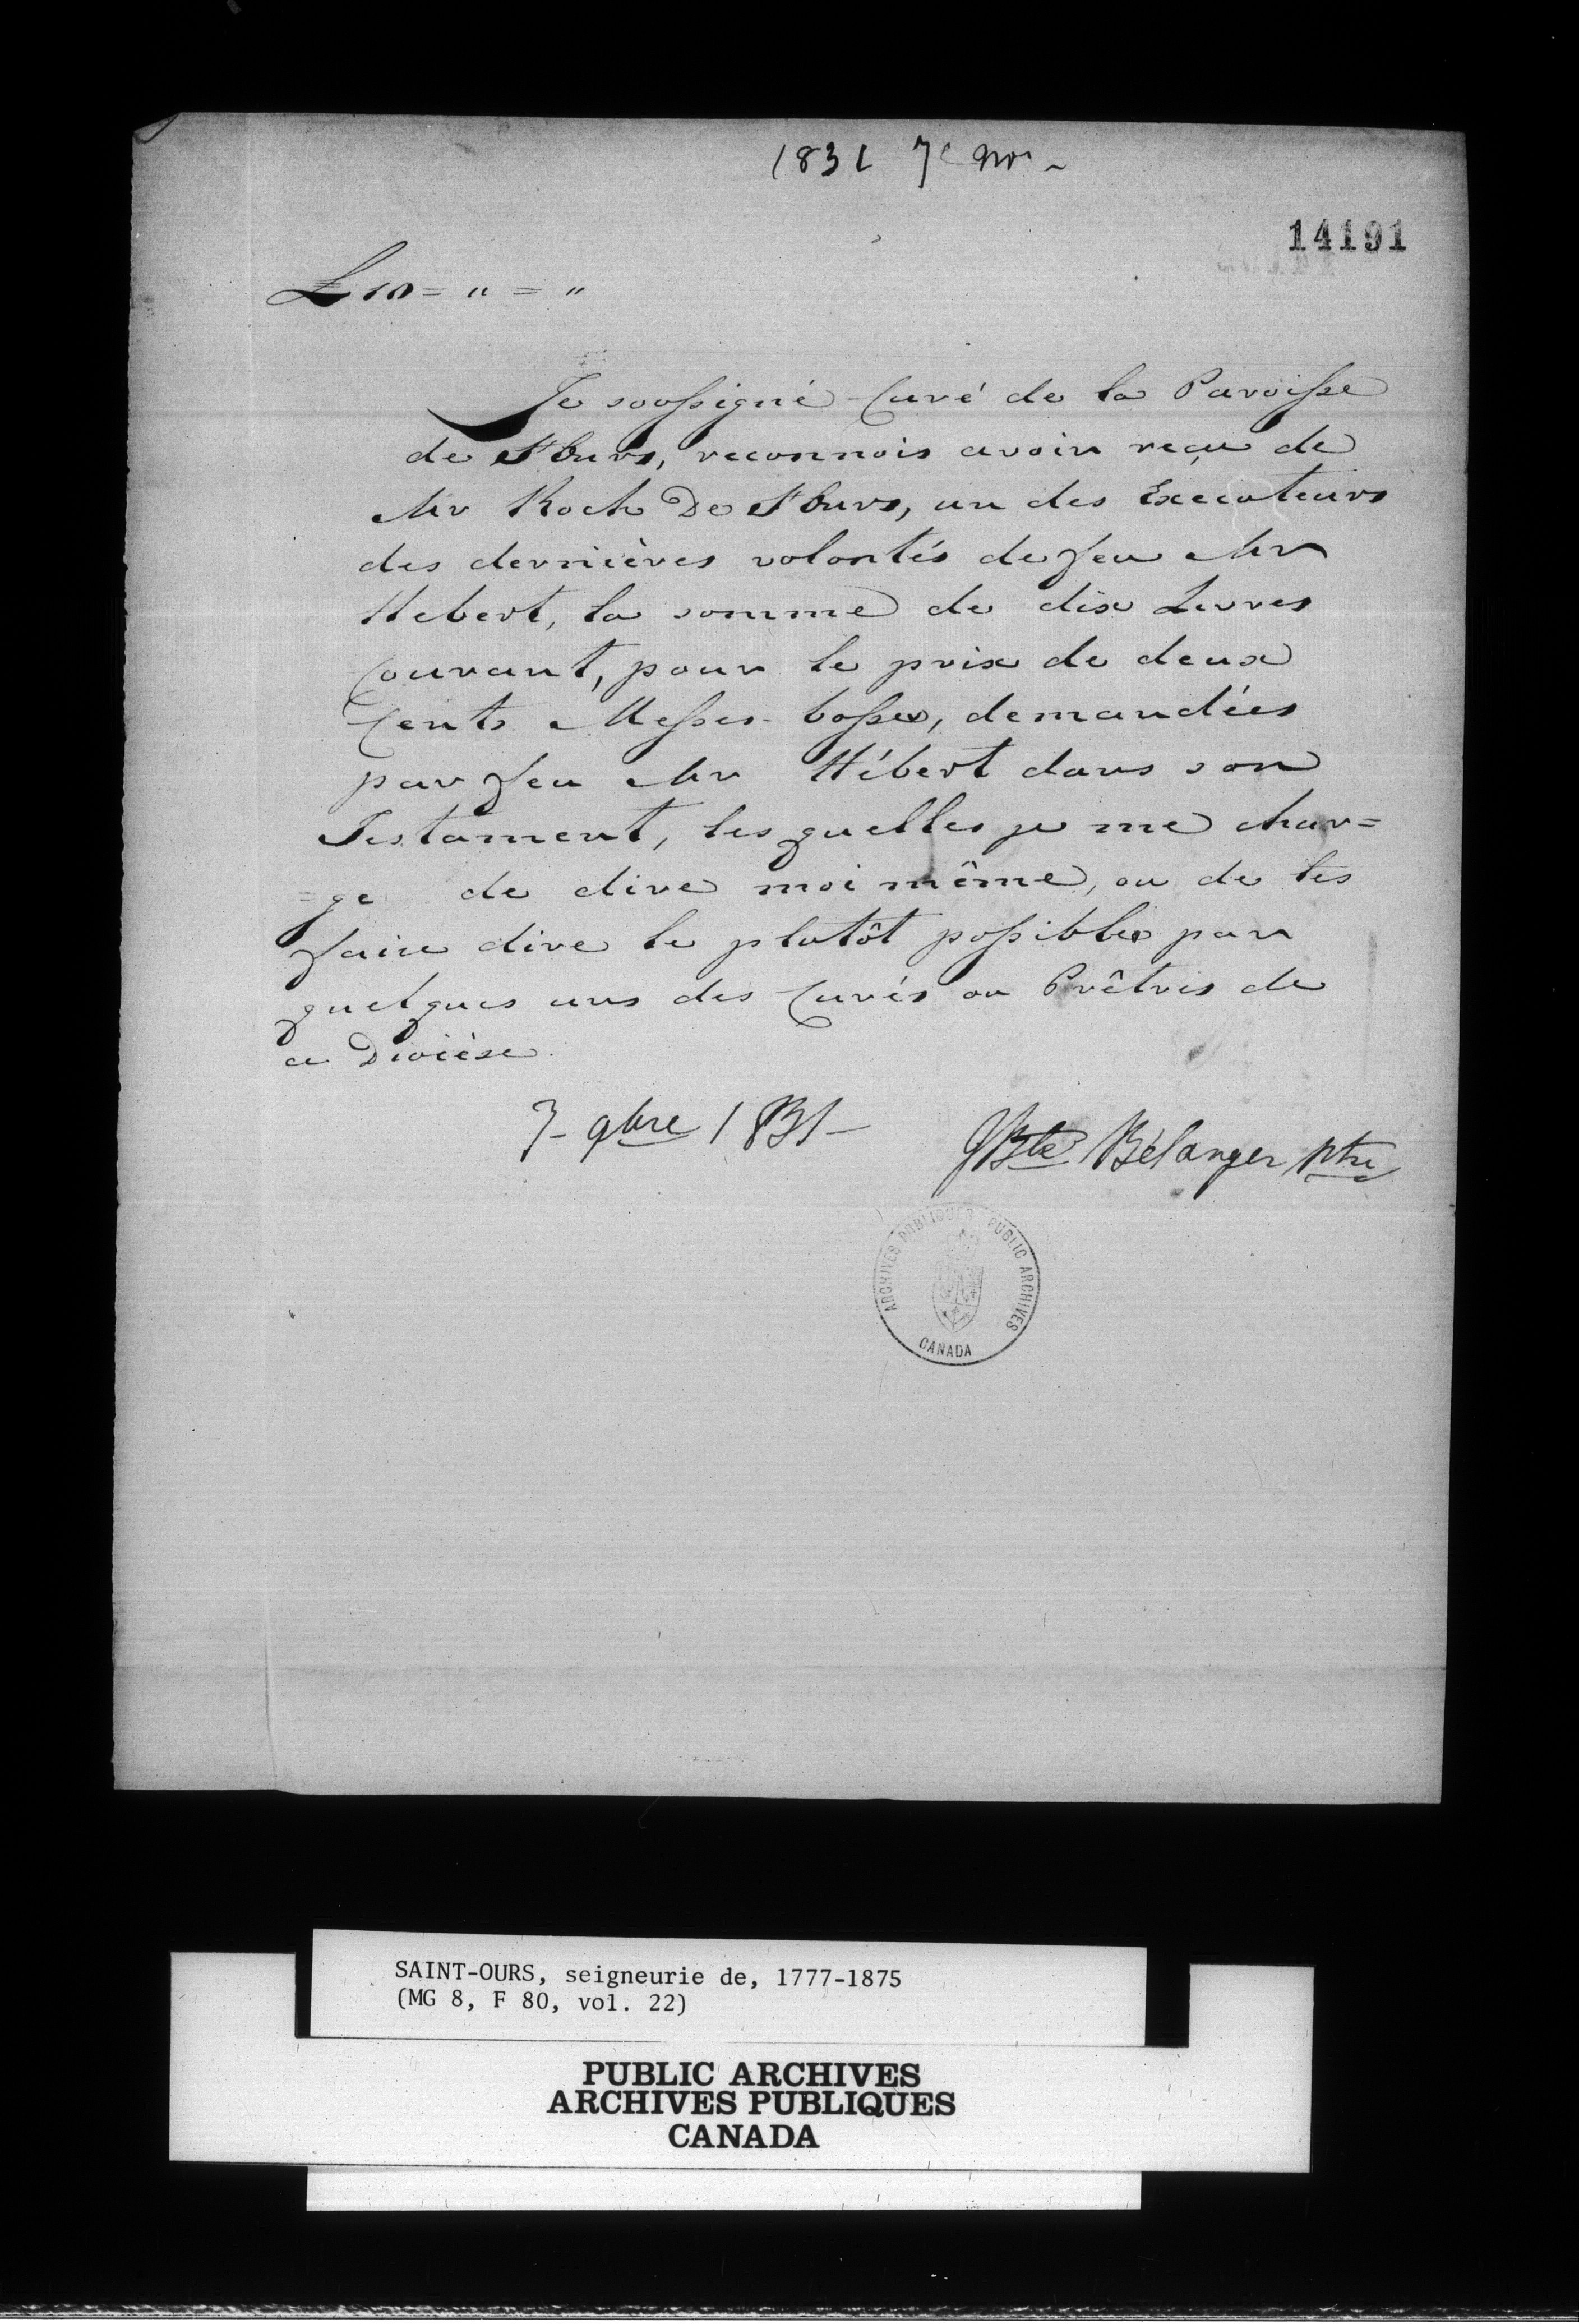 1831 7e 9vr
14191
£10 = " = "
Je soussigné Curé de la Paroisse
de St Ours, reconnois avoir reçu de
Mr Roch De St Ours, un des Exécuteurs
des dernières volontés de feu Mr
Hebert, la somme de dix Livres
Courant, pour le prix de deux
Cents Messes basses, demandées
par feu Mr Hébert dans son
Testament, lesquelles je me char=
=ge de dire moi même, ou de les
faire dire le plutôt possible par
quelques uns des Curés ou Prêtres de
ce Diocèse.
7 - 9bre 1831 -
JBte Bélanger Ptre
ARCHIVES PUBLIQUES PUBLIC ARCHIVES
CANADA
SAINT-OURS, seigneurie de, 1777-1875
(MG 8, F 80, vol. 22)
PUBLIC ARCHIVES
ARCHIVES PUBLIQUES
CANADA